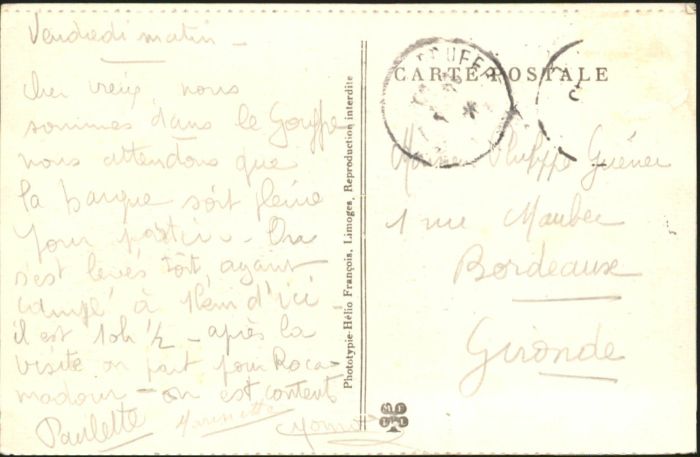 Vendredi matin -
Cher vieux, nous
sommes dans le Gouffre
nous attendons que
la barque soit pleine
pour partir - On
s'est levés tôt, ayant
campé à 1km d'ici
il est 10h 1/2 - après la
visite on part pour Roca-
madour - on est content
Paulette Marinette
Phototypie-Hélio François, Limoges, Reproduction interdite
CARTE POSTALE
Philippe Guéner
1 rue Maubec
Bordeaux
Gironde